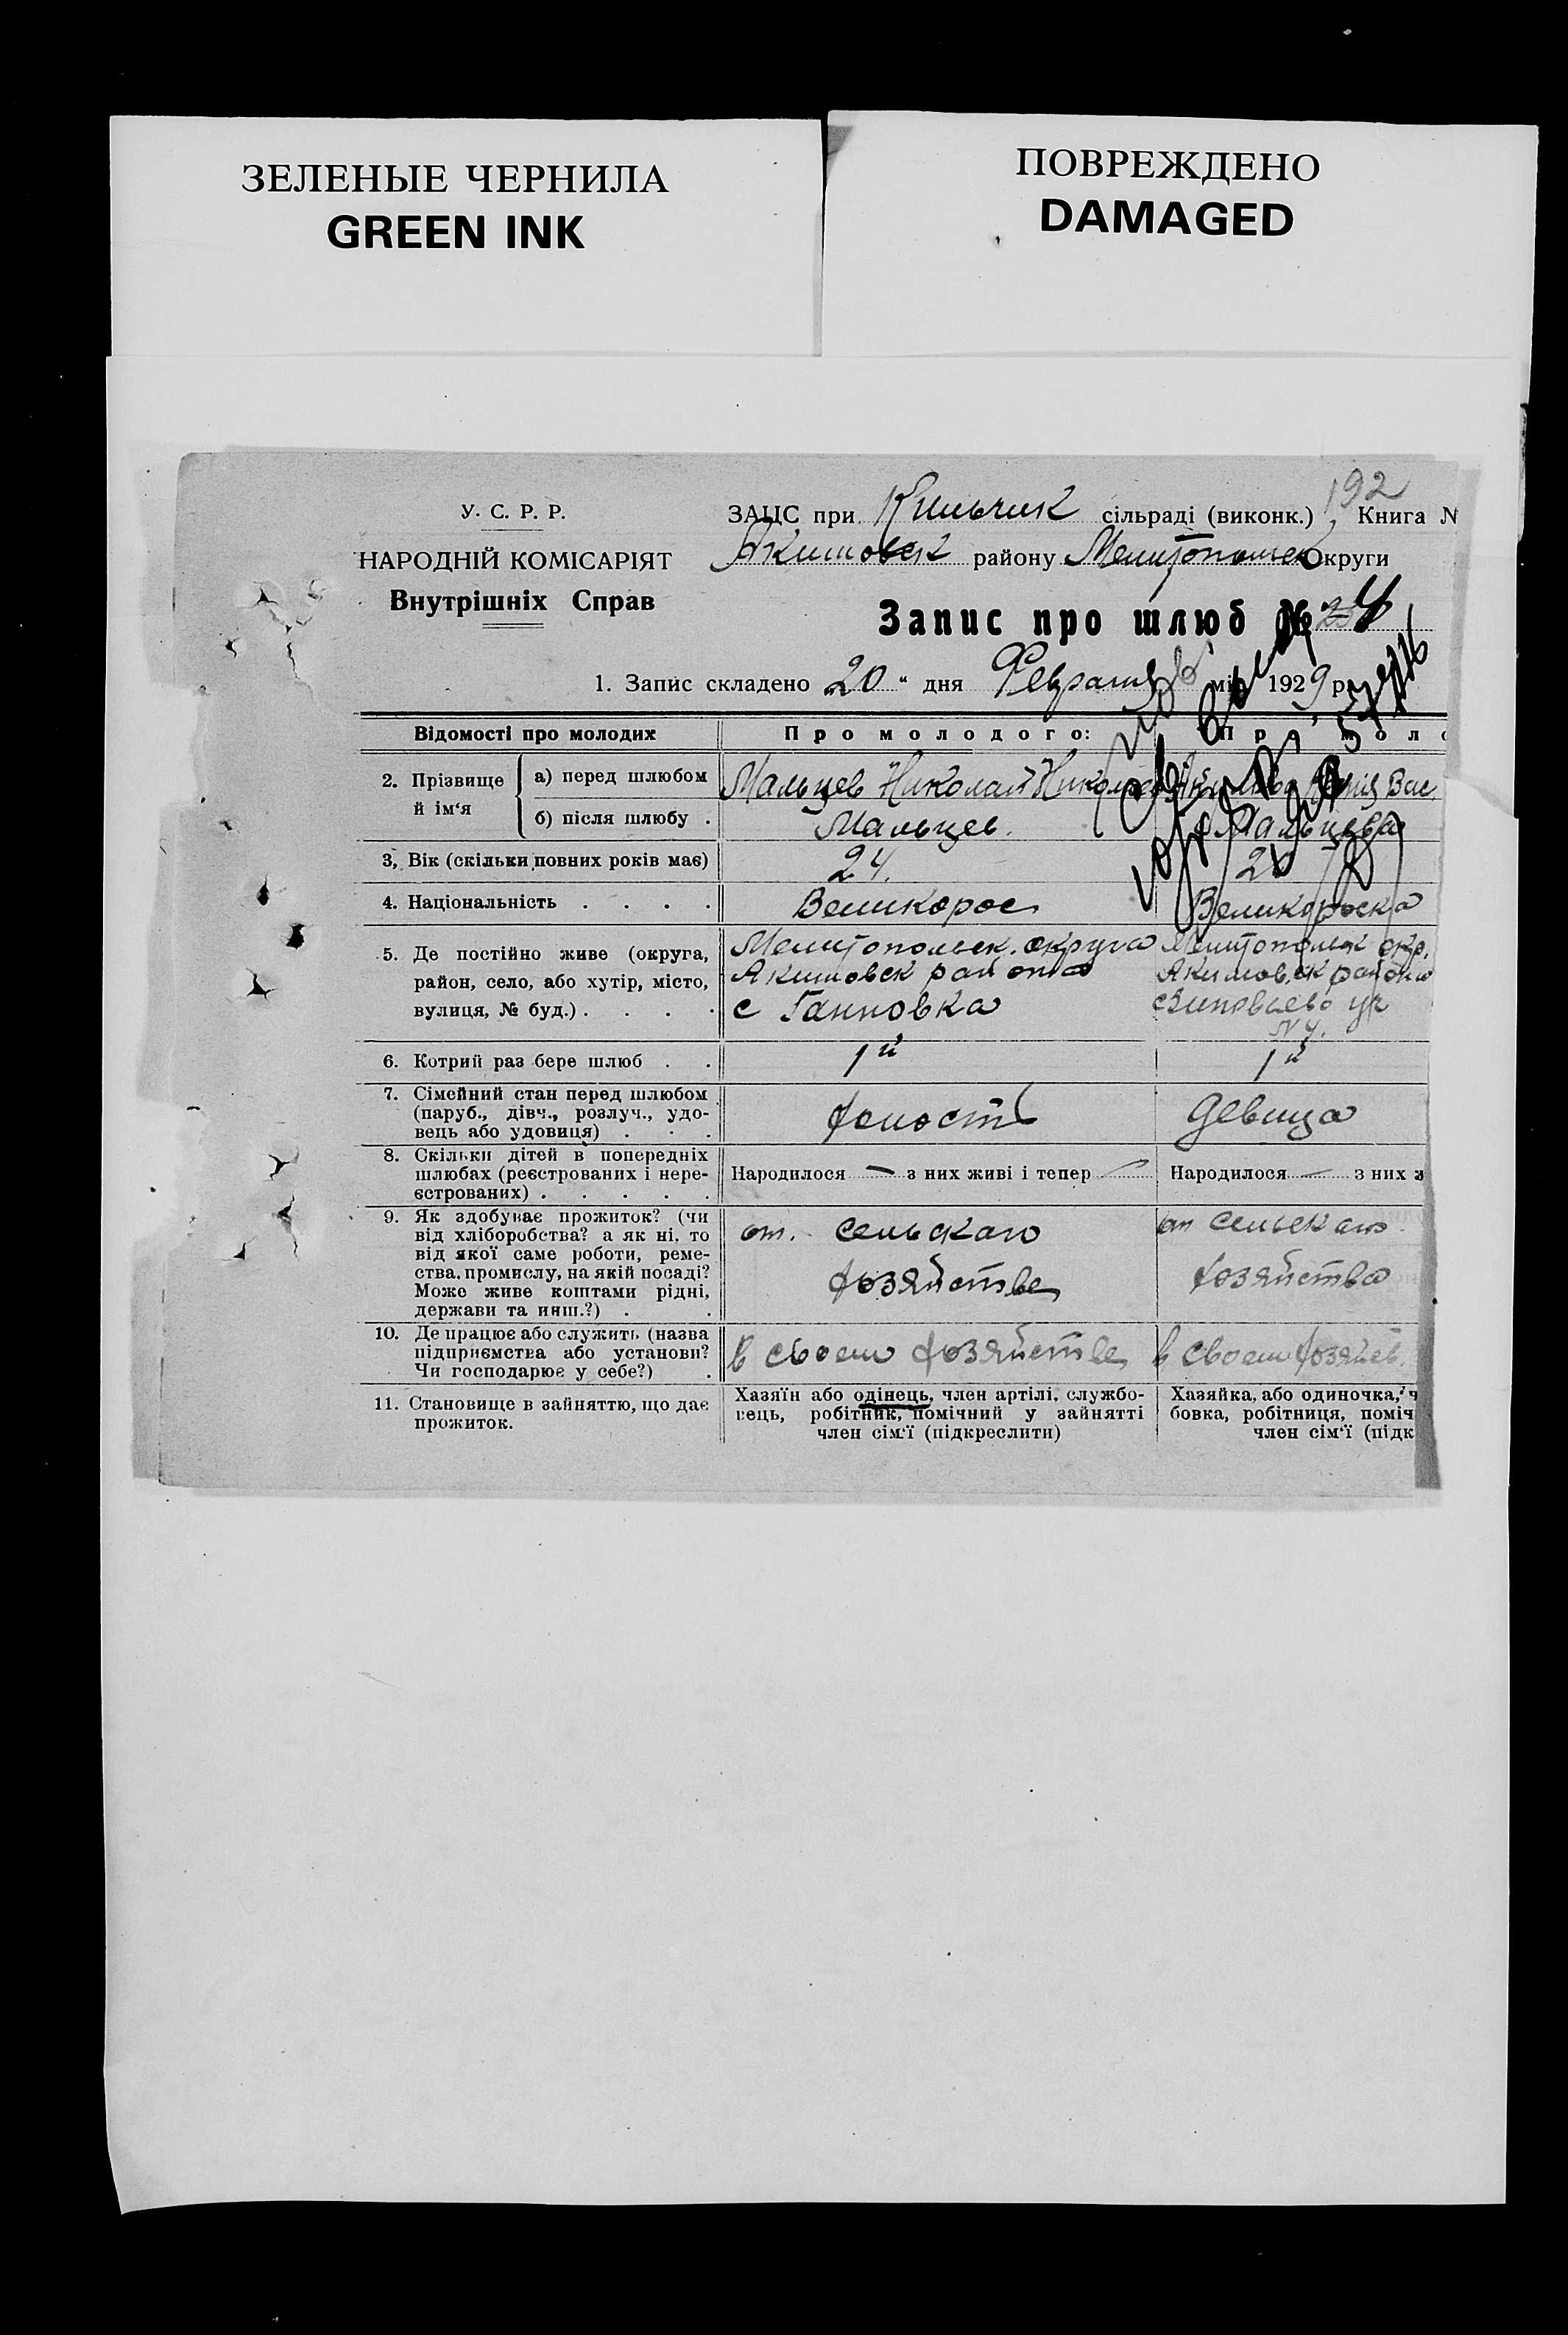 ЗЕЛЕНЫЕ ЧЕРНИЛА
GREEN INK
ПОВРЕЖДЕНО
DAMAGED
192
У. С. Р. Р.
ЗАЦС при сільраді (виконк.) Книга №
НАРОДНІЙ КОМІСАРІЯТ
Акимовск району Мелитопольск Округи
Внутрішніх Справ
Запис про шлюб № 4
1. Запис складено 20 " дня Февраля міс. 1929 р.
Відомості про молодих
Про молодого:
Про моло
2. Прізвище й ім'я
а) перед шлюбом
Мальцев Николай Никола Вас.
б) після шлюбу .
Мальцев. Мальцева
3, Вік (скільки повних років має)
24. 20
4. Національність . . . .
Великорос Великороска
5. Де постійно живе (округа, район, село, або хутір, місто, вулиця, № буд.) . . . .
Мелитопольск. округа
Акимовск района
с Ганновка
Мелитопольск окр.
Акимовск района
№ 4.
6. Котрий раз бере шлюб . .
1й 1й
7. Сімейний стан перед шлюбом
(паруб., дівч., розлуч., удо-
вець або удовиця) . . .
холост девица
8. Скільки дітей в попередніх
шлюбах (реєстрованих і нере-
єстрованих) . . . . .
Народилося — з них живі і тепер —
Народилося — з них ж
9. Як здобуває прожиток? (чи
від хліборобства? а як ні, то
від якої саме роботи, реме-
ства, промислу, на якій посаді?
Може живе коштами рідні,
держави та инш.?) . .
от. сельскаго
хозяйстве
от сельскаго
хозяйства
10. Де працює або служить (назва
підприємства або установи?
Чи господарює у себе?) .
в своем хозяйстве
в своем хозяйств.
11. Становище в зайняттю, що дає
прожиток.
Хазяїн або одінець, член артілі, службо-
вець, робітник, помічний у зайнятті
член сім'ї (підкреслити)
Хазяйка, або одиночка, ч
бовка, робітниця, поміч
член сім'ї (підк